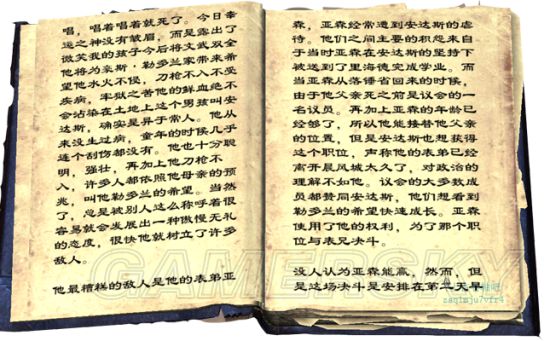 唱，唱着唱着就死了。今日幸
运之神没有皱眉，而是露出了
微笑我的孩子今后将文武双全
他将为豪斯·勒多兰家带来希
望他水火不侵，刀枪不入不受
疾病，牢狱之苦他的鲜血绝不
会沾染在土地上这个男孩叫安
达斯，确实是异于常人。他从
来没生过病，童年的时候几乎
连个刮伤都没有。他也十分聪
明，强壮，再加上他刀枪不
入，许多人都依照他母亲的预
兆，叫他勒多兰的希望。当然
了，总是被别人这么称呼着很
容易就会发展出一种傲慢无礼
的态度，很快他就树立了许多
敌人。
他最糟糕的敌人是他的表弟亚
森，亚森经常遭到安达斯的虐
待，他们之间主要的积怨来自
于当时亚森在安达斯的坚持下
被送到了里海德完成学业。而
当亚森从落锤省回来的时候，
由于他父亲死之前是议会的一
名议员。再加上亚森的年龄已
经够了，所以他能接替他父亲
的位置，但是安达斯也想获得
这个职位，声称他的表弟已经
离开晨风城太久了，对政治的
理解不如他。议会的大多数成
员都赞同安达斯，他们想看到
勒多兰的希望快速成长。亚森
使用了他的权利，为了那个职
位与表兄决斗。
没人认为亚森能赢，然而，但
是这场决斗是安排在第二天早
GAMERSKY
zaq1mju7vfr4